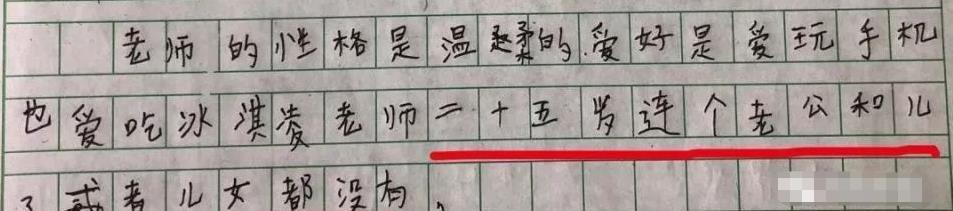 老师的性格是温柔的爱好是爱玩手机
也爱吃冰淇凌老师二十五岁连个老公和儿
子或者儿女都没有。